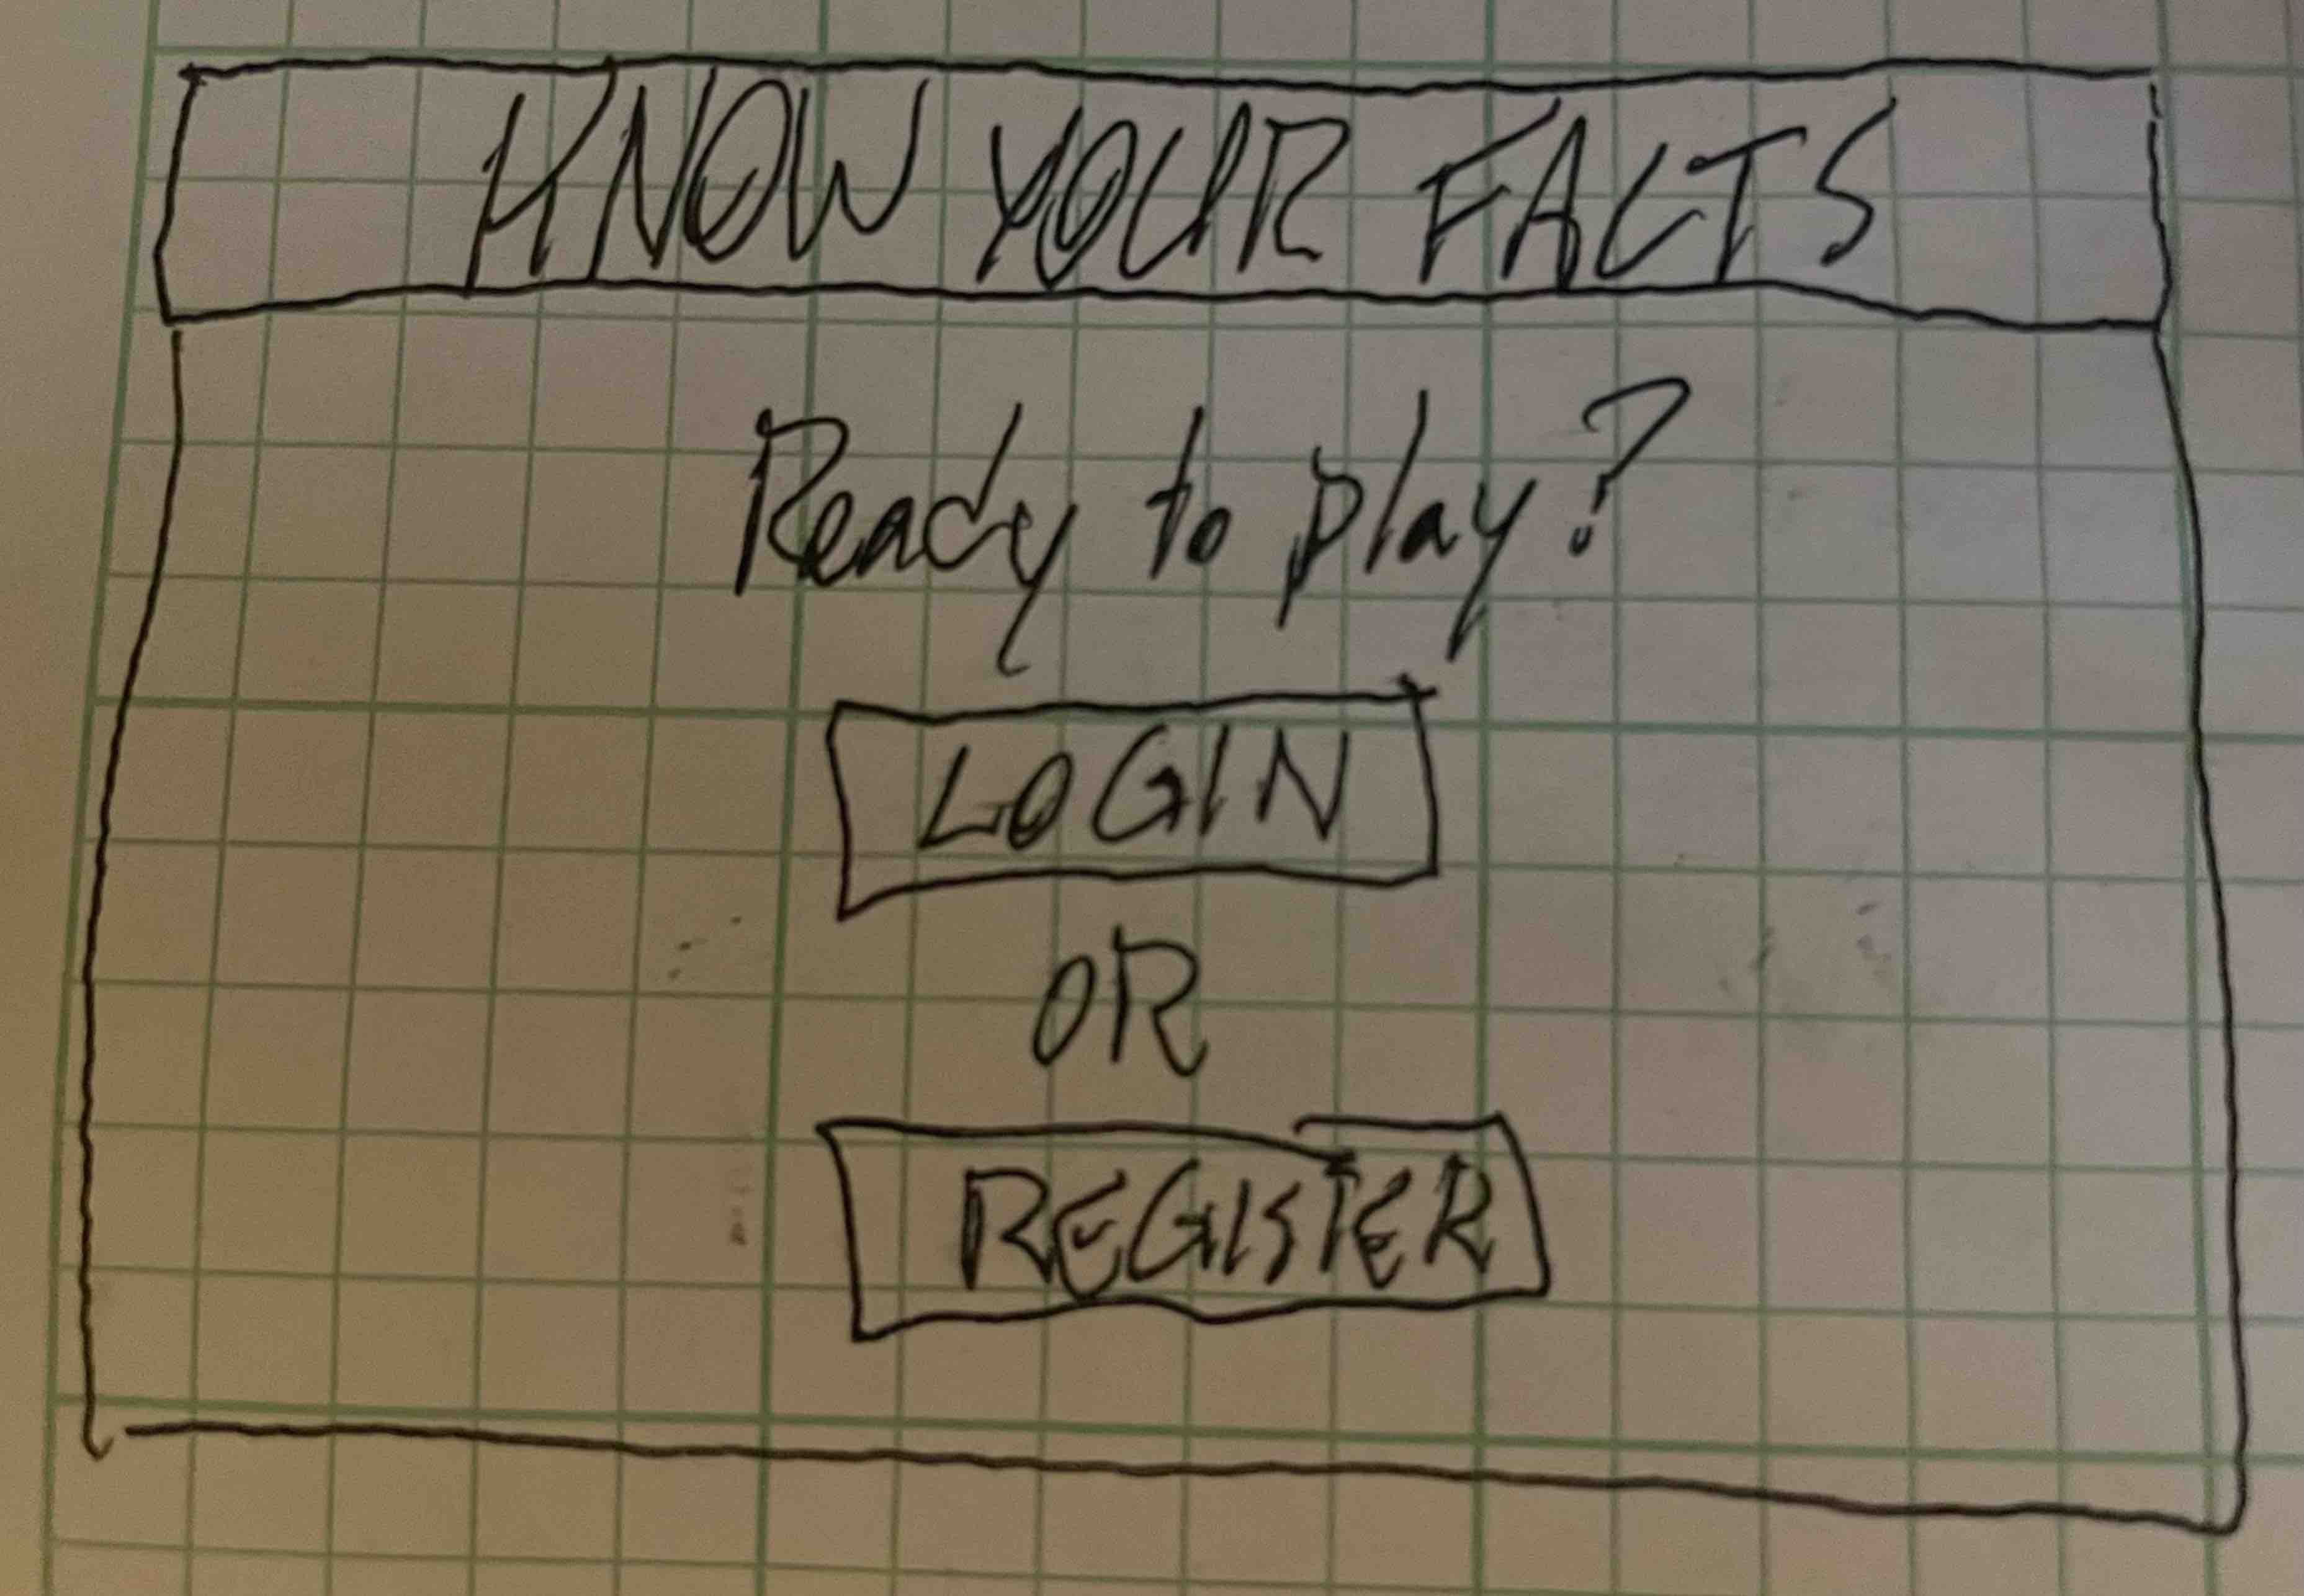 KNOW YOUR FACTS
Ready to play?
LOGIN
OR
REGISTER